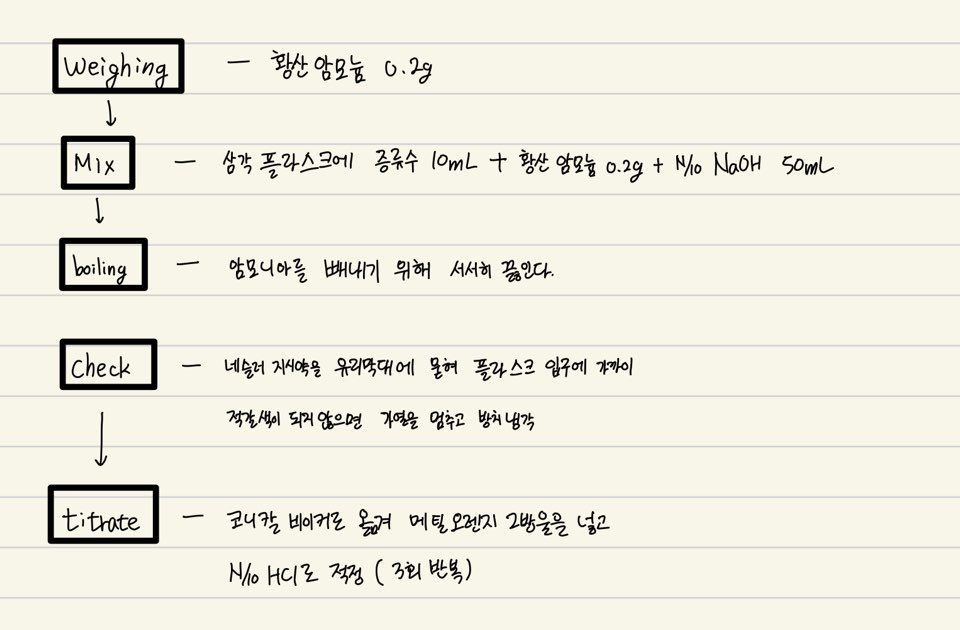 Weighing — 황산암모늄 0.2g
Mix — 삼각 플라스크에 증류수 10mL + 황산암모늄 0.2g + N/10 NaOH 50mL
boiling — 암모니아를 빼내기 위해 서서히 끓인다.
check — 네슬러 지시약을 유리막대에 묻혀 플라스크 입구에 가까이
적갈색이 되지 않으면 가열을 멈추고 방치냉각
titrate — 코니칼 비이커로 옮겨 메틸오렌지 2방울을 넣고
N/10 HCl로 적정 (3회 반복)